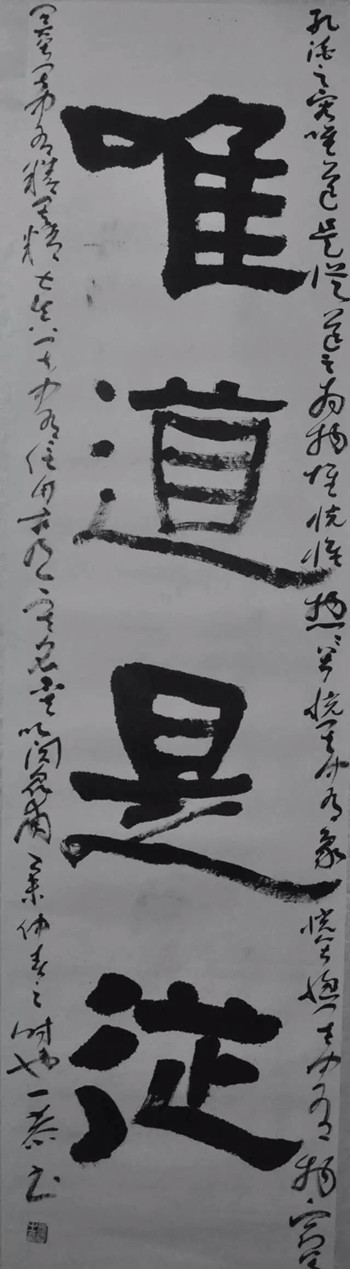 唯道是從
孔德之容唯道是從道之為物惟恍惟惚惚兮恍其中有象恍兮惚其中有物窈兮
冥兮其中有精其精甚真其中有信自古及今其名不去以閱衆甫仲春之時也一恭書